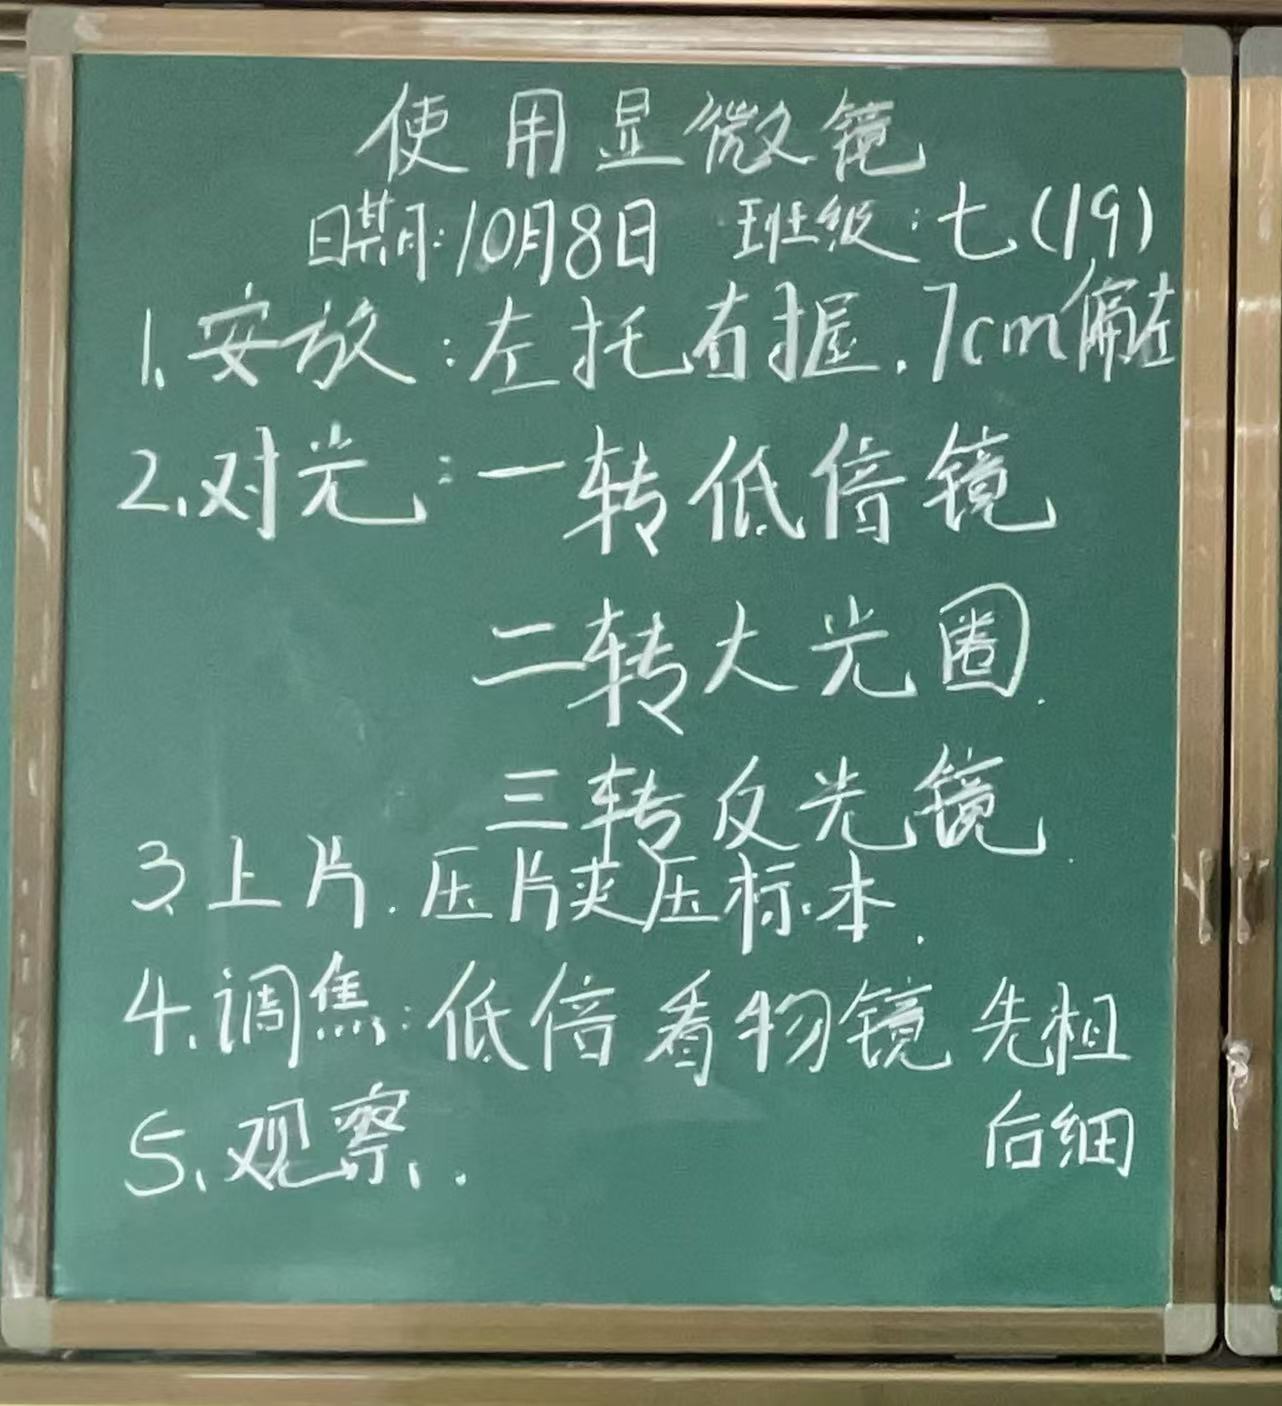 使用显微镜
日期:10月8日 班级:七(19)
1.安放:左托右握.7cm偏左
2.对光:一转低倍镜
二转大光圈.
三转反光镜.
3.上片.压片夹压标本.
4.调焦:低倍看物镜 先粗
后细
5.观察.